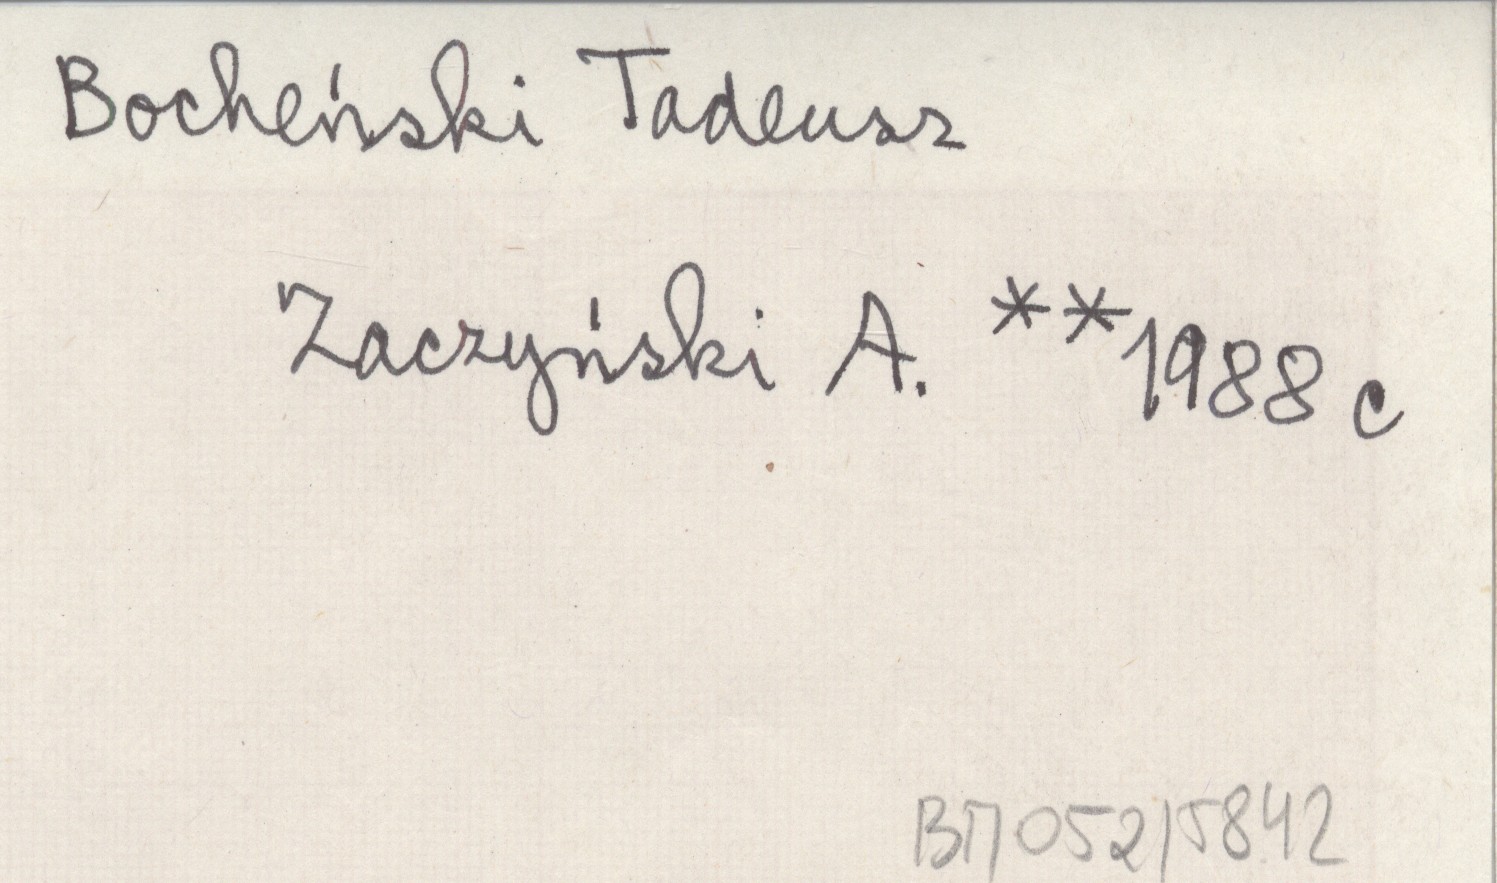 Bocheński Tadeusz
Zaczyński A. **1988 c
052/5842